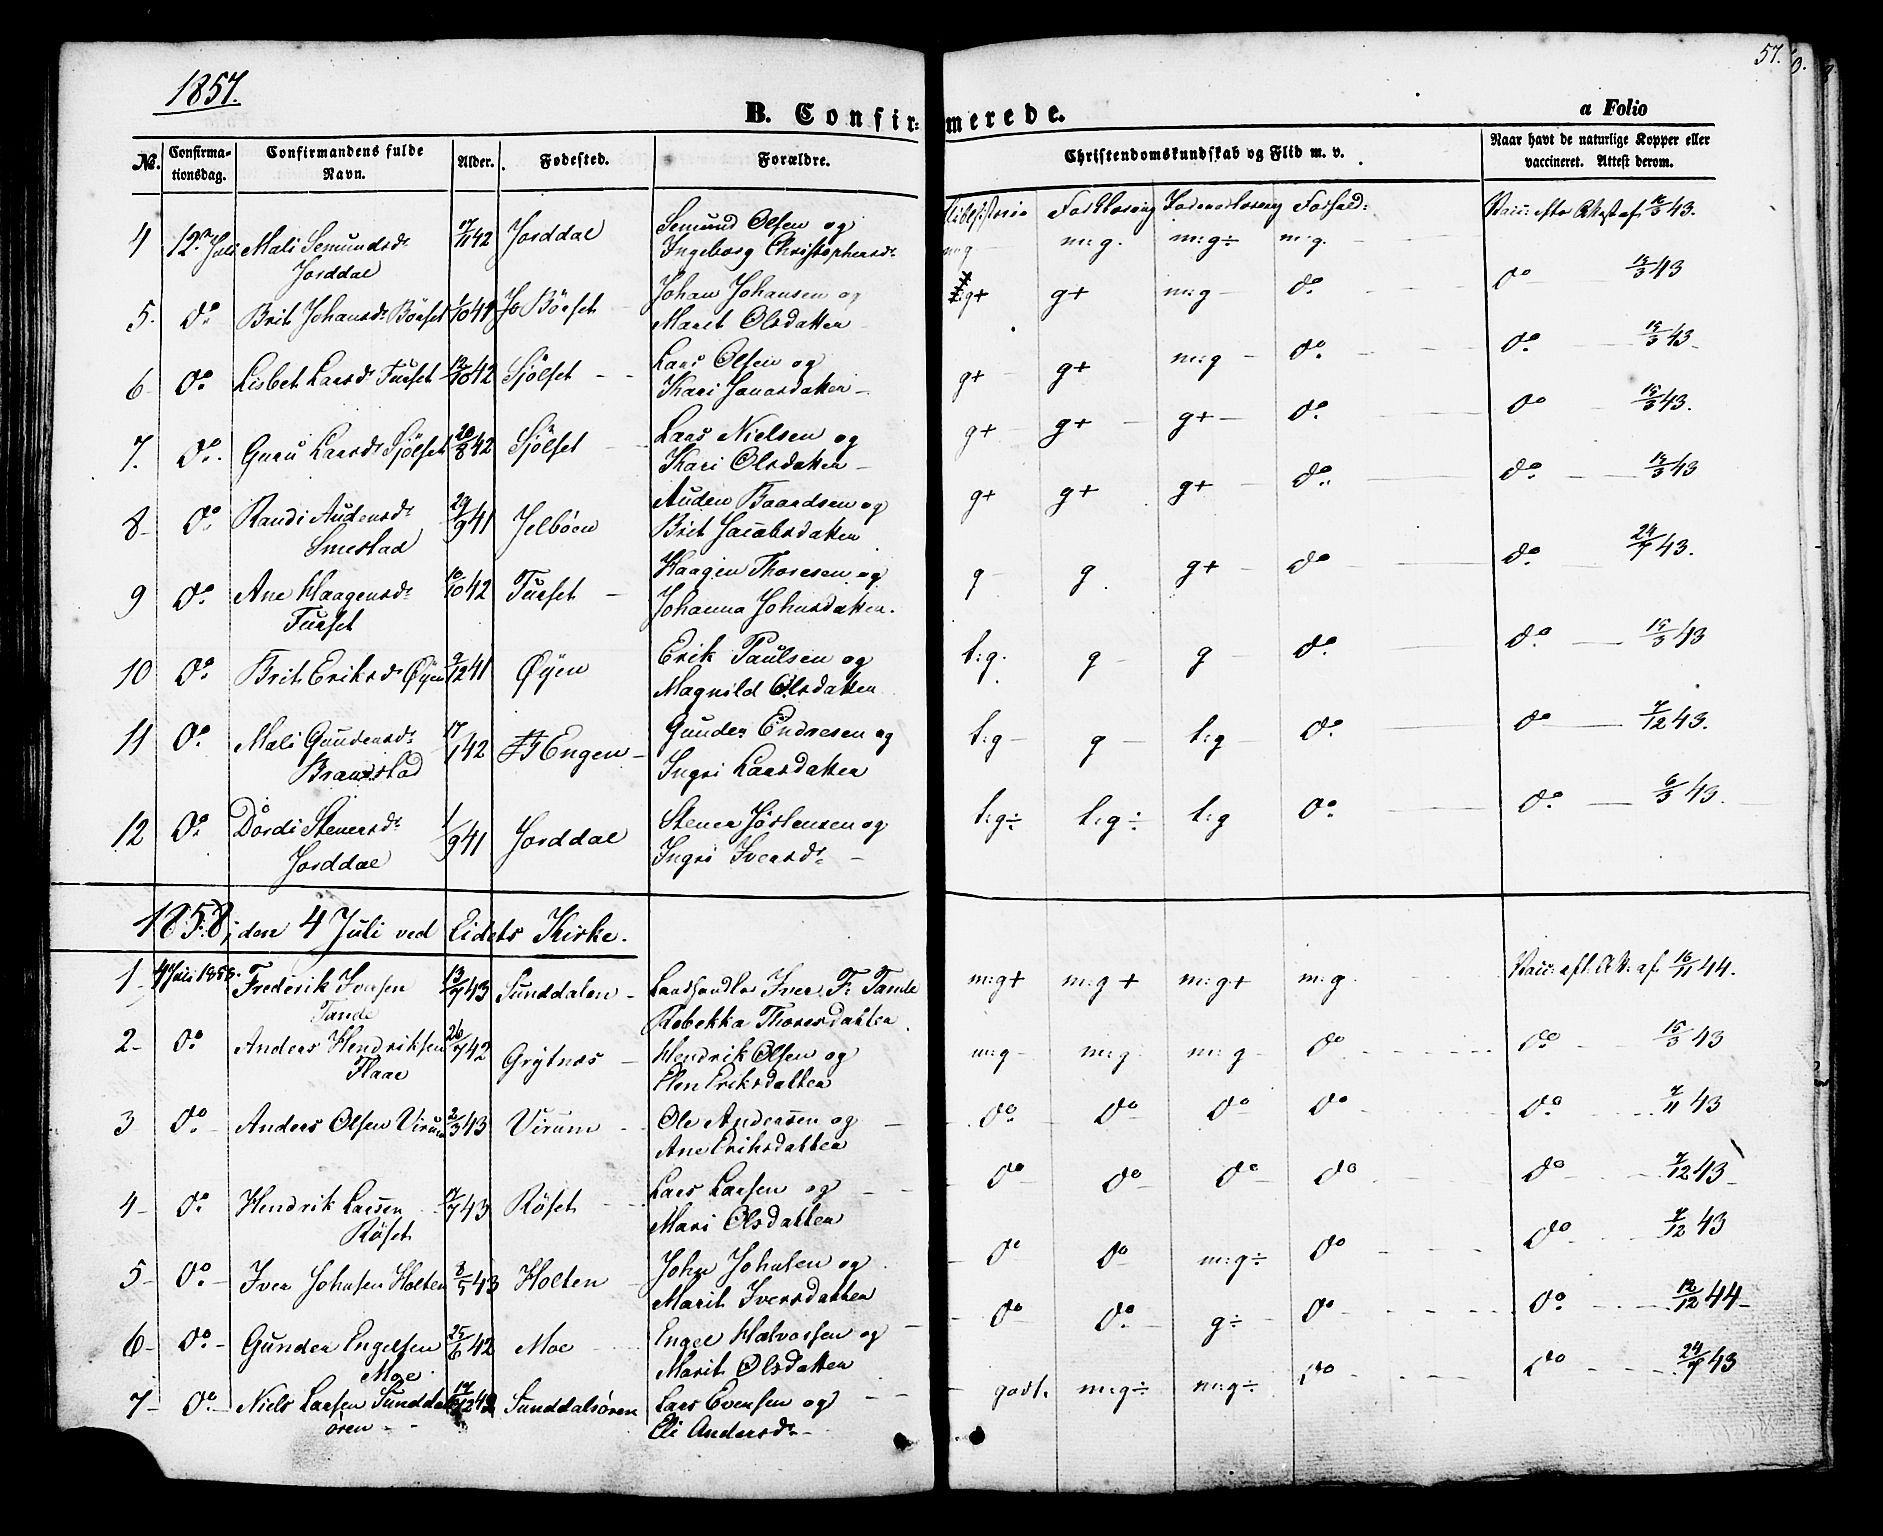 1857.
57.
B. Confirmerede.
a Folio
No. Confirmationsdag. Confirmandens fulde Navn. Alder. Fødested. Forældre. Christendomskundskab og Flid m. v. Naar havt de naturlige Kopper eller vaccineret. Attest derom.
4 12te Juli Mali Semundsdr Jorddal 42 Jorddal Semund Olsen og Ingeborg Christophersdr m:g m:g. m:g÷ m:g. 43.
5. do Brit Johansdr Börset 1/10 41 Börset Johan Johansen og Marit Olsdatter g+ g+ m:g do do 43
6 do Lisbet Larsd. Furset 42 Sjölset Lars Olsen og Kari Jonasdatter g+ g+ m:g do do 15/3 43
7. do Guru Larsdr Sjölset 20/8 42 Sjölset Lars Nielsen og Kari Olsdatter g+ g+ g+ do do 15/3 43.
8 do Randi Audensdr Smestad 29/9 41 Jelböen Auden Baardsen og Brit Jacobsdatter g+ g+ g+ do do 43
9 do Ane Haagensdr Furset 10/10 42 Furset Haagen Thoresen og Johanna Johnsdatter. g g g+ do do 43.
10 do Brit Eriksdr Øyen 9/12 41 Øyen Erik Paulsen og Magnild Olsdatter t:g. g g do do 15/3 43
11 do Mali Gundersdr 17/1 42 Engen Gunder Endresen og Ingri Larsdatter t:g g t:g do do 7/12 43.
12 do Dordi Stenersdr Jorddal 1/9 41 Jorddal Stener Jörgensen og Ingri Iversdr t:g÷ t:g÷ t:g do do 6/3 43.
1858, den 4 Juli ved Eidets Kirke.
1 4 Juli 1858. Frederik Iversen Tande 13/7 43 Sunddalen Landhandler Iver F. Tande Rebekka Thoresdatter m:g+ m:g+ m:g+ m:g Vacc: eft. Att. af 16/11 44.
2 do Anders Hendriksen Flaae 26/7 42 Grytnes Hendrik Olsen og Elen Eriksdatter m:g m:g m:g do do 15/3 43
3 do Anders Olsen Virum 2/3 43 Virum Ole Andersen og Ane Eriksdatter do do do do do 7/11 43
4 do Hendrik Larsen Röset 43 Röset Lars Larsen og Mari Olsdatter do do do do do 7/12 43
5 do Iver Johnsen Holten 8/5 43 Holten John Johnsen og Marit Iversdatter do do m:g÷ do do 7/12 43
6 do Gunder Engelsen Moe 25/6 42 Moe Engel Halvorsen og Marit Olsdatter do do g÷ do do 12/12 44
7 do Niels Larsen Sunddalsören Sunddalsören Lars Evensen og Eli Andersdr godt. m:g÷ m:g÷ do do 43